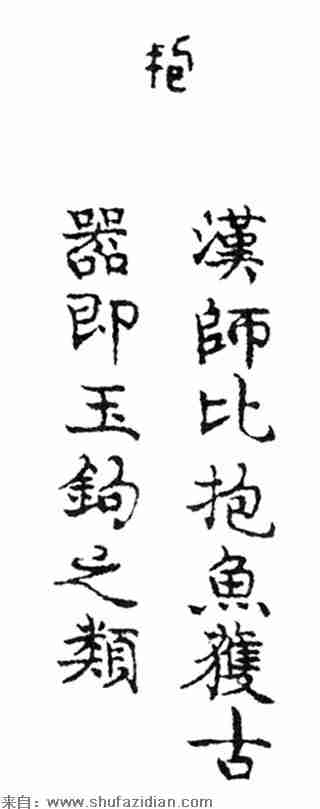 抱
漢師比抱魚獲古
器即玉鉤之類
来自:www.shufazidian.com